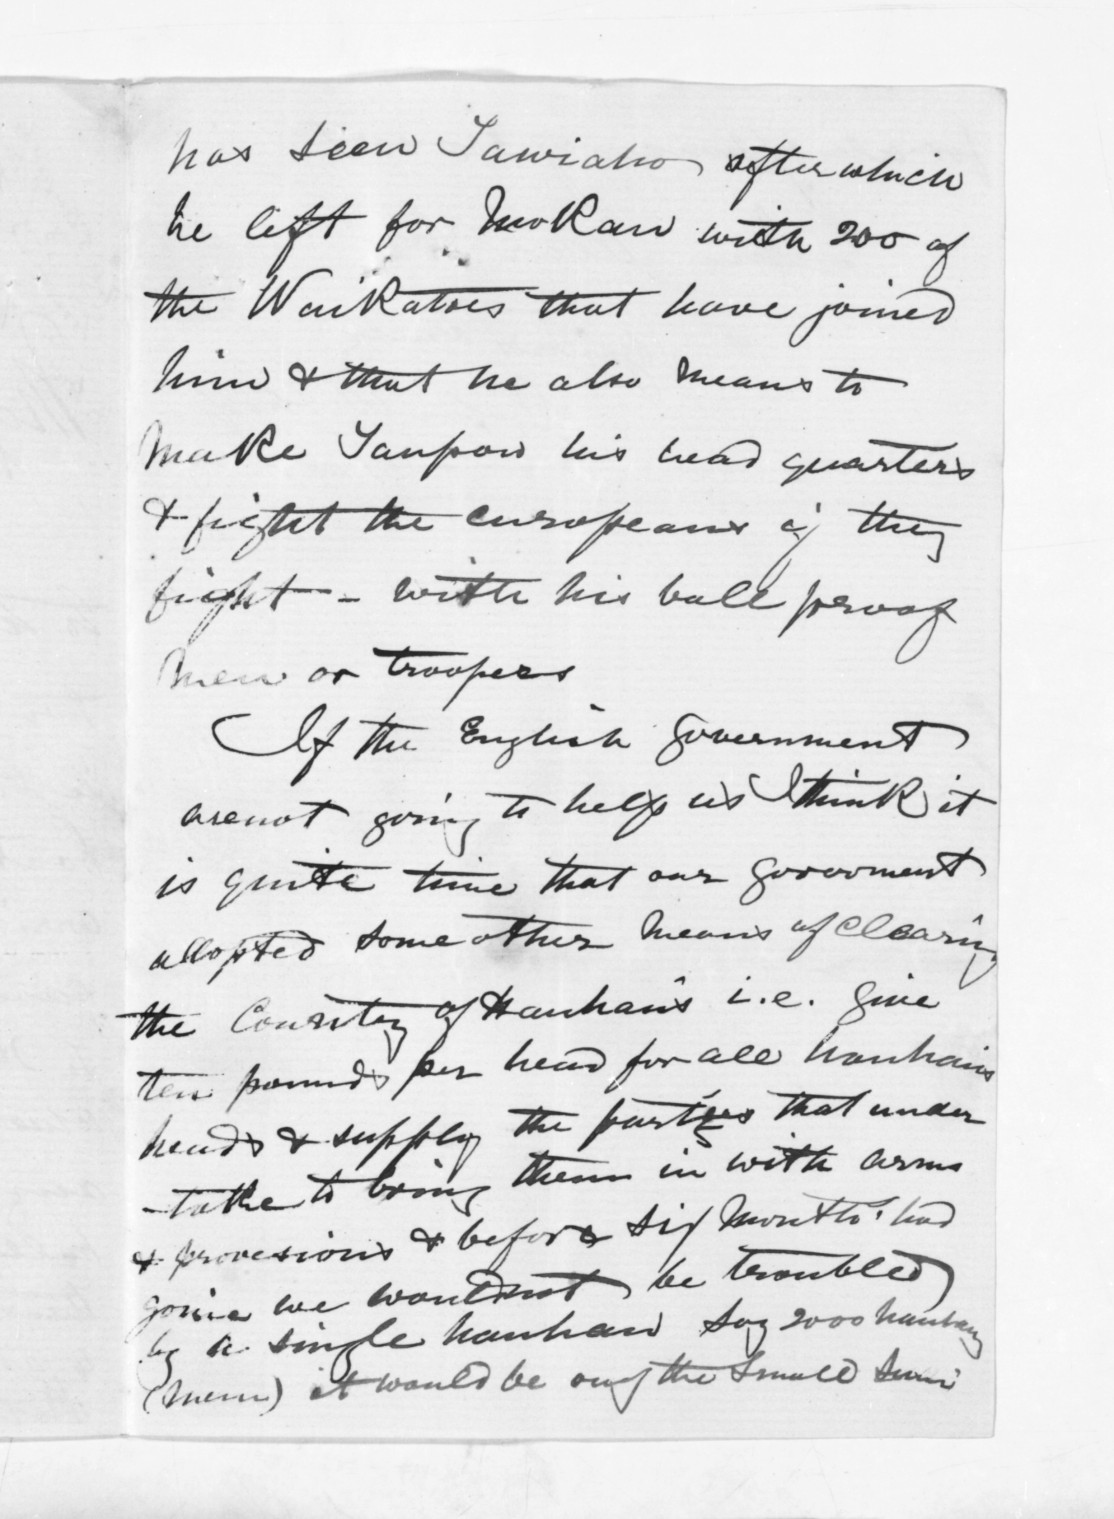 has seen Tawiaho after which
he left for Mokau with 200 of
the Waikatoes that have joined
him & that he also means to
make Taupow his head quarters
& fight the europeans if they
fight - with his ball proof
men or troopers
If the English government
are not going to help us I think it
is quite time that our goverment
allopted some other means of clearing
the Country of Hauhau's i.e. give
ten pounds per head for all hauhaus
heads & supply the parties that under
-take to bring them in with arms
& provesions & before six months had
gone we wouldnot be troubled
by a single hauhau say 2000 hauhaus
(men) it would be only the small sum